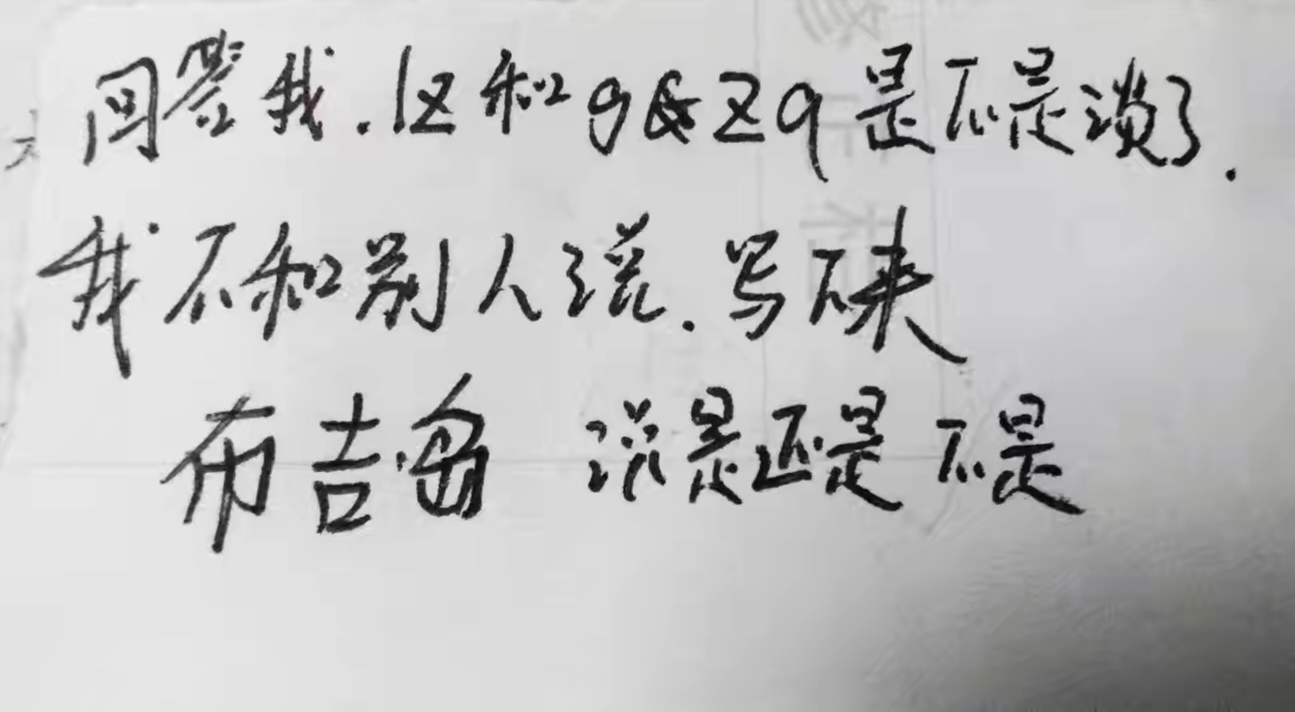 回答我.lz和g&zq是不是谈了.
我不和别人说.写下来
布吉岛 说是还是不是